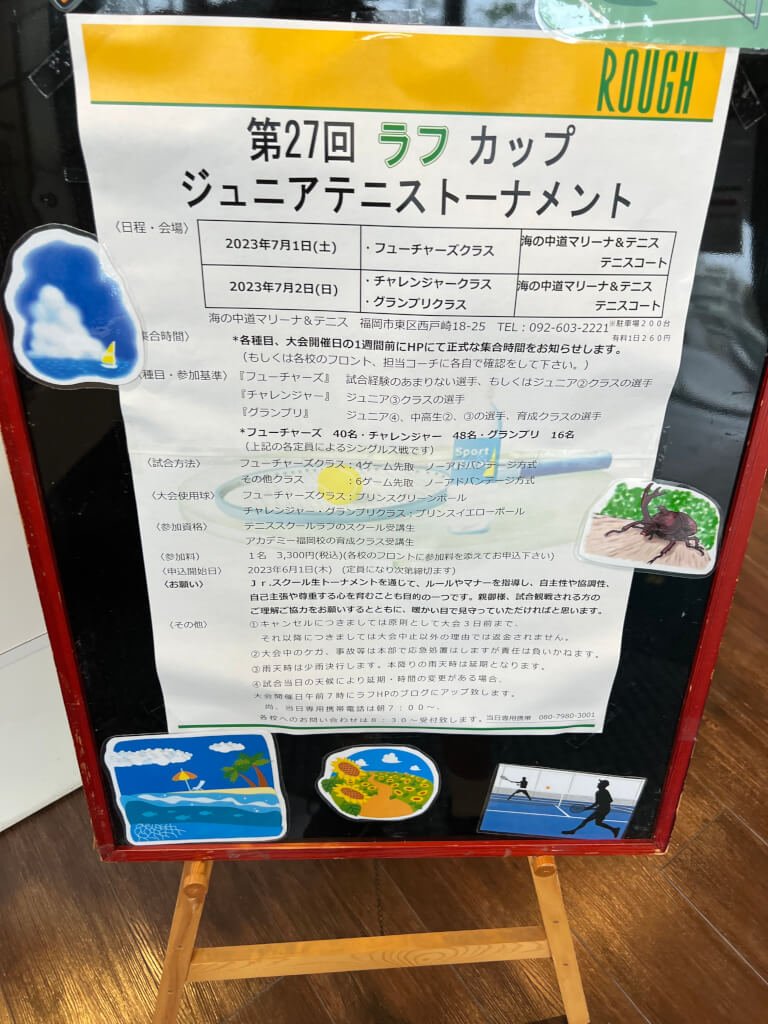 ROUGH
第27回 ラフ カップ
ジュニアテニストーナメント
〈日程・会場〉
2023年7月1日(土) ・フューチャーズクラス 海の中道マリーナ&テニス テニスコート
2023年7月2日(日) ・チャレンジャークラス ・グランプリクラス 海の中道マリーナ&テニス テニスコート
海の中道マリーナ&テニス 福岡市東区西戸崎18-25 TEL:092-603-2221 ※駐車場200台 有料1日260円
集合時間〉 *各種目、大会開催日の1週間前にHPにて正式な集合時間をお知らせします。
(もしくは各校のフロント、担当コーチに各自で確認をして下さい。)
種目・参加基準〉 『フューチャーズ』 試合経験のあまりない選手、もしくはジュニア②クラスの選手
『チャレンジャー』 ジュニア③クラスの選手
『グランプリ』 ジュニア④、中高生②、③の選手、育成クラスの選手
*フューチャーズ 40名・チャレンジャー 48名・グランプリ 16名
(上記の各定員によるシングルス戦です)
Sport
〈試合方法〉 フューチャーズクラス:4ゲーム先取 ノーアドバンテージ方式
その他クラス :6ゲーム先取 ノーアドバンテージ方式
〈大会使用球〉 フューチャーズクラス:プリンスグリーンボール
チャレンジャー・グランプリクラス:プリンスイエローボール
〈参加資格〉 テニススクールラフのスクール受講生
アカデミー福岡校の育成クラス受講生
〈参加料〉 1名 3,300円(税込)(各校のフロントに参加料を添えてお申込下さい)
〈申込開始日〉 2023年6月1日(木) (定員になり次第締切ます)
〈お願い〉 Jr.スクール生トーナメントを通じて、ルールやマナーを指導し、自主性や協調性、
自己主張や尊重する心を育むことも目的の一つです。親御様、試合観戦される方の
ご理解ご協力をお願いするとともに、暖かい目で見守っていただければと思います。
〈その他〉 ①キャンセルにつきましては原則として大会3日前まで、
それ以降につきましては大会中止以外の理由では返金されません。
②大会中のケガ、事故等は本部で応急処置はしますが責任は負いかねます。
③雨天時は少雨決行します。本降りの雨天時は延期となります。
④試合当日の天候により延期・時間の変更がある場合、
大会開催日午前7時にラフHPのブログにアップ致します。
尚、当日専用携帯電話は朝7:00〜、
各校へのお問い合わせは8:30〜受付致します。当日専用携帯 080-7980-3001